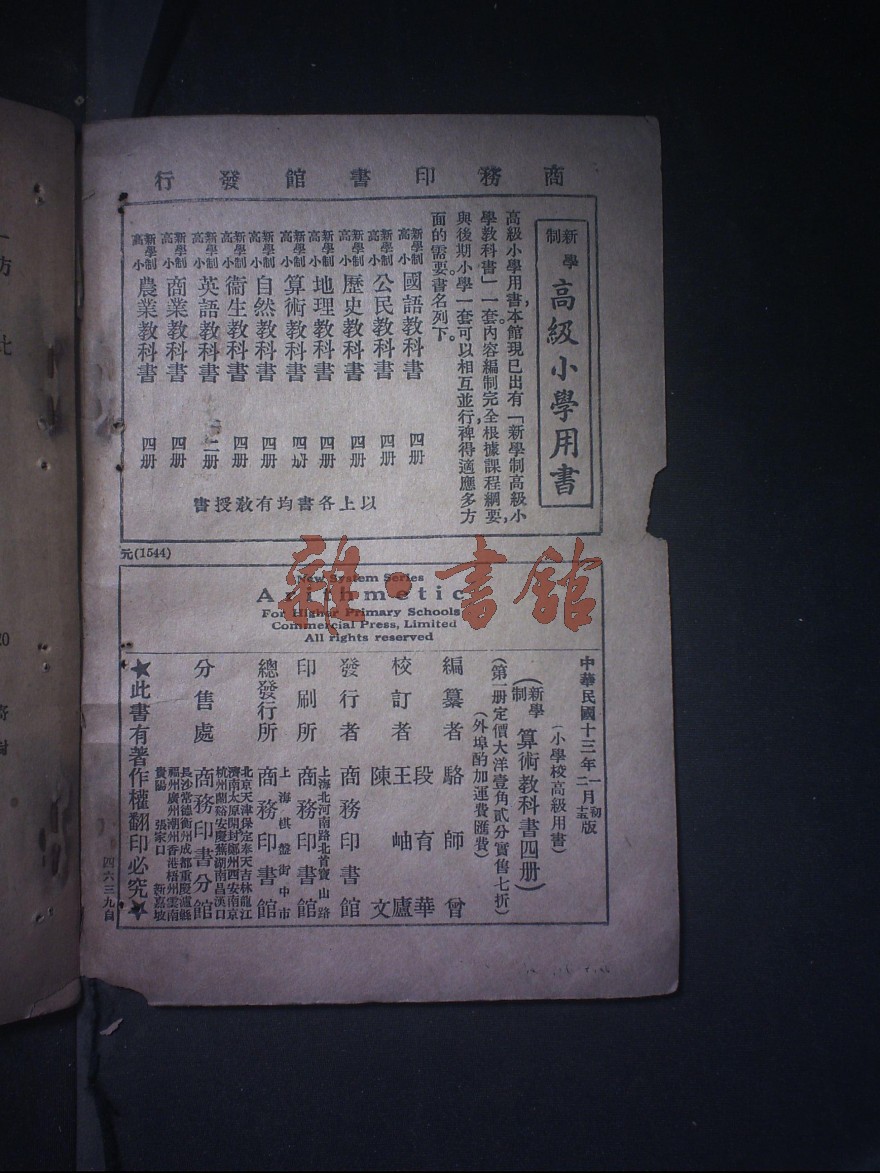 商務印書館發行
新學制
高級小學用書
高級小學用書，本館現已出有「新學制高級小
學教科書」一套。內容編制完全根據課程綱要，
與後期小學一套可以相互並行，裨得適應多方
面的需要。書名列下。
新學制高小 國語教科書 四册
新學制高小 公民教科書 四册
新學制高小 歷史教科書 四册
新學制高小 地理教科書 四册
新學制高小 算術教科書 四册
新學制高小 自然教科書 四册
新學制高小 衞生教科書 四册
新學制高小 英語教科書 二册
新學制高小 商業教科書 四册
新學制高小 農業教科書 四册
以上各書均有教授書
元(1544)
New System Series
Arithmetic
For Higher Primary Schools
Commercial Press, Limited
All rights reserved
雜·書館
中華民國十三年一月初版
二月
(小學校高級用書)
(新學制 算術教科書四册)
(第一册定價大洋壹角貳分實售七折)
(外埠酌加運費匯費)
編纂者 駱師曾
校訂者 段育華
王岫廬
陳文
發行者 商務印書館
印刷所 上海北河南路北首寶山路
商務印書館
總發行所 上海棋盤街中市
商務印書館
分售處 北京天津保定奉天吉林龍江
濟南太原開封鄭州西安南京
杭州蘭谿安慶蕪湖南昌漢口
商務印書分館
長沙常德衡州成都重慶瀘縣
福州廣州潮州香港梧州雲南
貴陽 張家口 新嘉坡
★此書有著作權翻印必究★
四六三九自